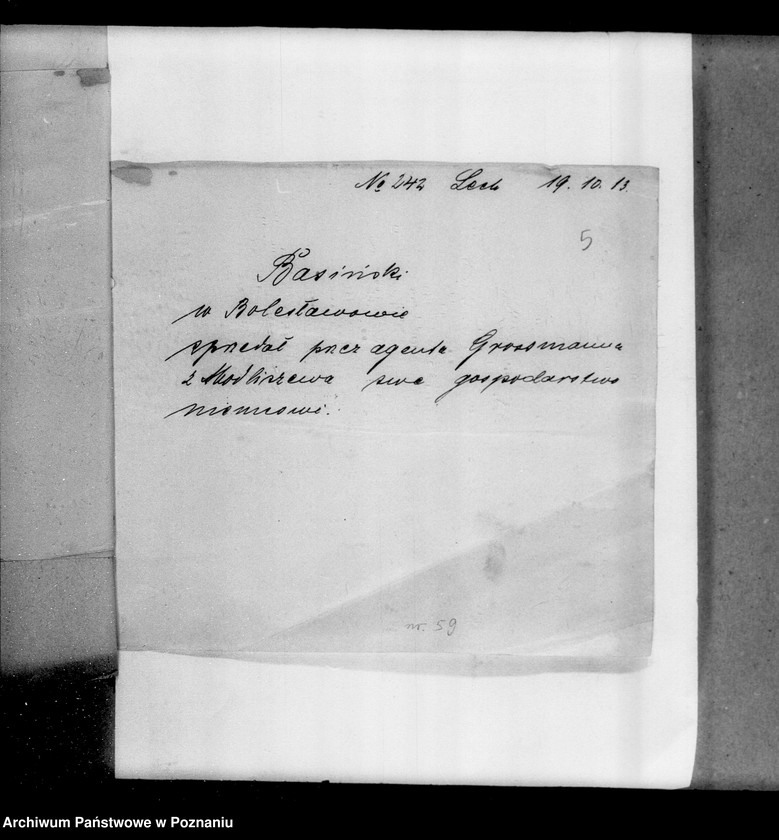 No 242 Lech 19. 10. 13.
5
Basiński
w Bolesławowie
sprzedał przez agenta Grossmanna
z Modliszewa swe gospodarstwo
niemcowi.
nr. 59
Archiwum Państwowe w Poznaniu